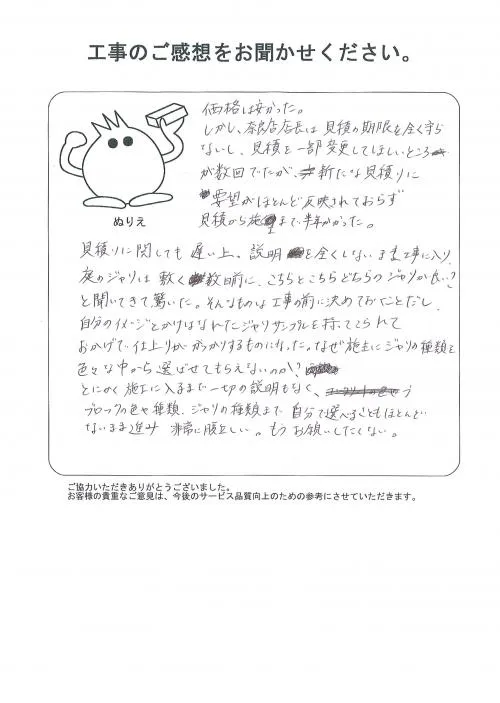 工事のご感想をお聞かせください。
価格は安かった。
しかし、奈良店店長は見積の期限を全く守ら
ないし、見積を一部変更してほしいところ
が数回でたが、新たな見積りに
要望がほとんど反映されておらず
見積から施まで半年かかった。
ぬりえ
見積りに関しても遅い上、説明を全くしないまま工事に入り、
庭のジャリは敷く数日前に、こちらとこちらどちらのジャリが良い?
と聞いてきて驚いた。そんなものは工事の前に決めておくことだし、
自分のイメージとかけはなれたジャリサンプルを持ってこられて
おかげで仕上りがガッカリするものになった。なぜ施主にジャリの種類を
色々な中から選ばせてもらえないのか?
とにかく施工に入るまで一切の説明もなく、
ブロックの色や種類、ジャリの種類まで自分で選べることもほとんど
ないまま進み 非常に腹立しい。もうお願いしたくない。
ご協力いただきありがとうございました。
お客様の貴重なご意見は、今後のサービス品質向上のための参考にさせていただきます。